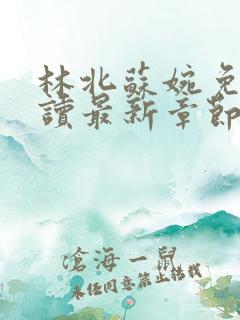 林北蘇婉免
讀最新章節
滄海一鼠
未經同意禁止轉載